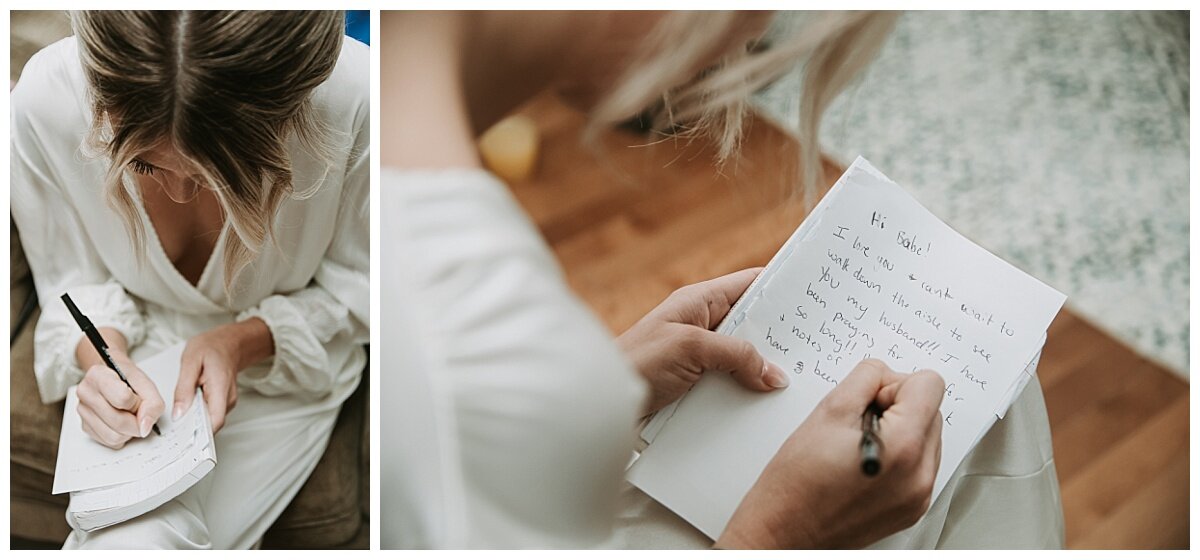 Hi Babe!
I love you & cant wait to
walk down the aisle to see
you my husband!! I have
been praying for for
so long!!
& notes of k
have been